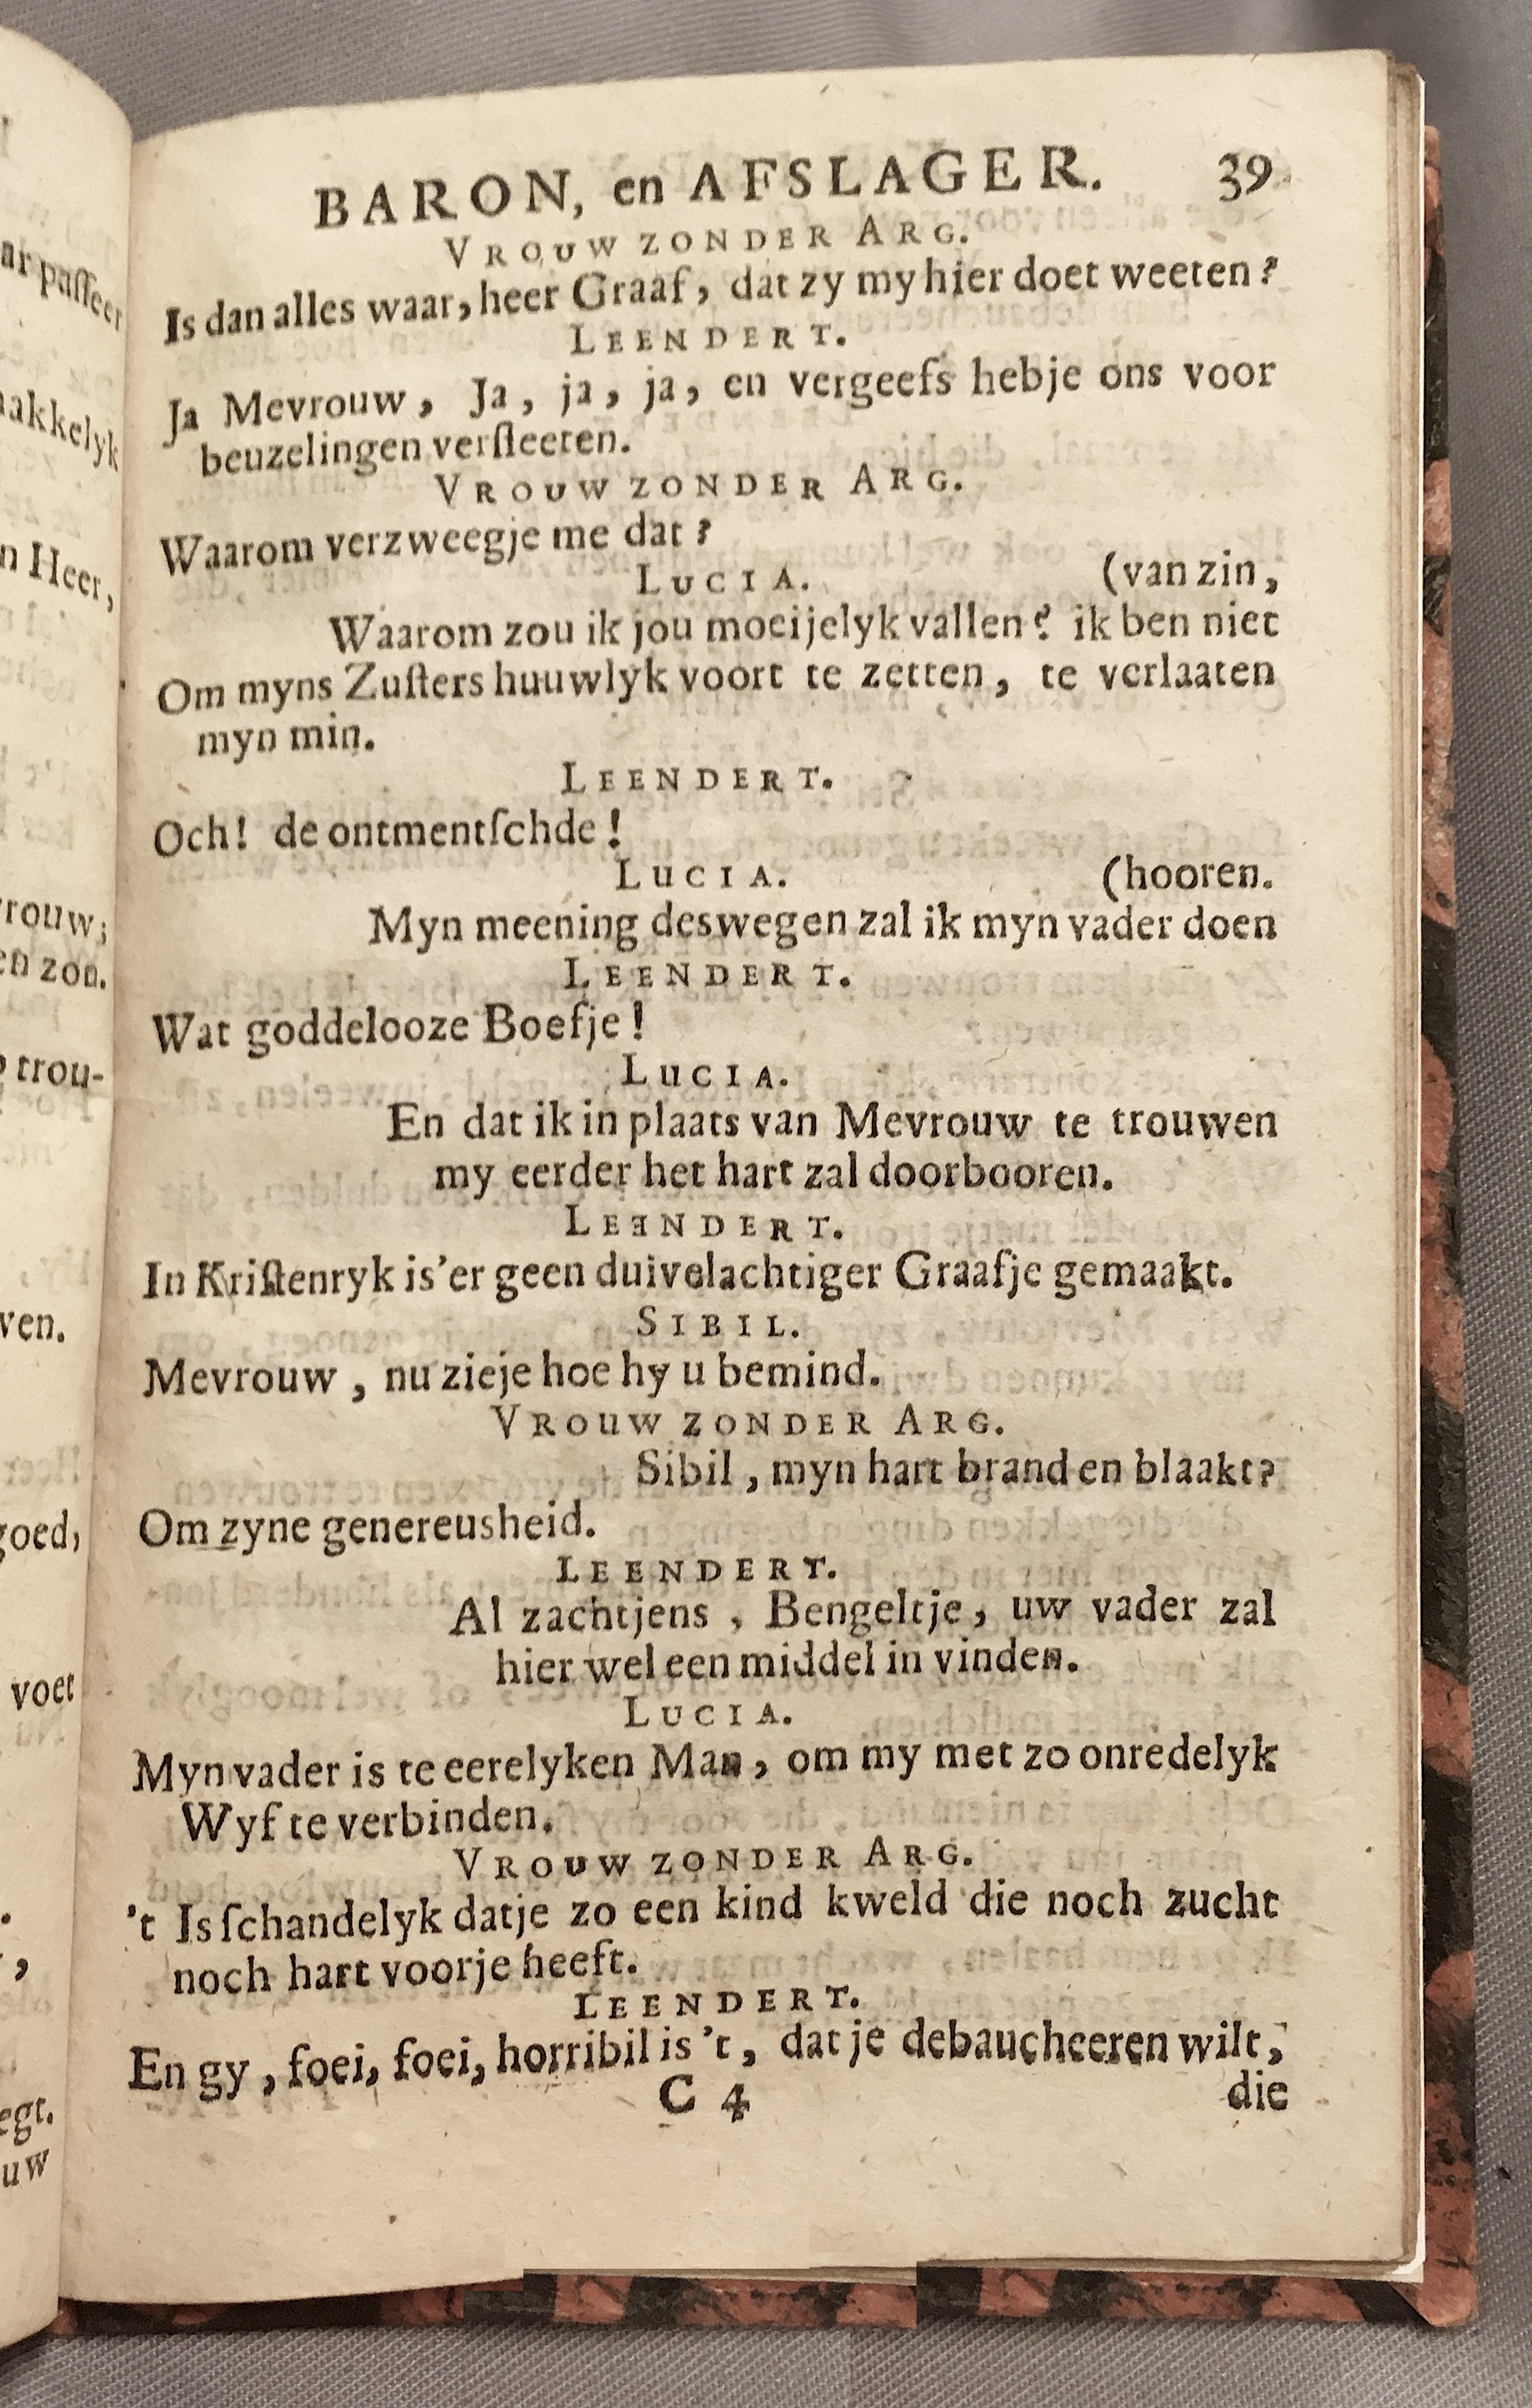 BARON, en AFSLAGER. 39
VROUW ZONDER ARG.
Is dan alles waar, heer Graaf, dat zy my hier doet weeten?
LEENDERT.
Ja Mevrouw, Ja, ja, ja, en vergeefs hebje ons voor
beuzelingen verſleeten.
VROUW ZONDER ARG.
Waarom verzweegje me dat?
LUCIA. (van zin,
Waarom zou ik jou moeijelyk vallen? ik ben niet
Om myns Zuſters huuwlyk voort te zetten, te verlaaten
myn min.
LEENDERT.
Och! de ontmentſchde!
LUCIA. (hooren.
Myn meening deswegen zal ik myn vader doen
LEENDERT.
Wat goddelooze Boefje!
LUCIA.
En dat ik in plaats van Mevrouw te trouwen
my eerder het hart zal doorbooren.
LEENDERT.
In Kriſtenryk is'er geen duivelachtiger Graafje gemaakt.
SIBIL.
Mevrouw, nu zieje hoe hy u bemind.
VROUW ZONDER ARG.
Sibil, myn hart brand en blaakt?
Om zyne genereusheid.
LEENDERT.
Al zachtjens, Bengeltje, uw vader zal
hier wel een middel in vinden.
LUCIA.
Myn vader is te eerelyken Man, om my met zo onredelyk
Wyf te verbinden.
VROUW ZONDER ARG.
't Is ſchandelyk datje zo een kind kweld die noch zucht
noch hart voorje heeft.
LEENDERT.
En gy, foei, foei, horribil is 't, dat je debaucheeren wilt,
C 4 die